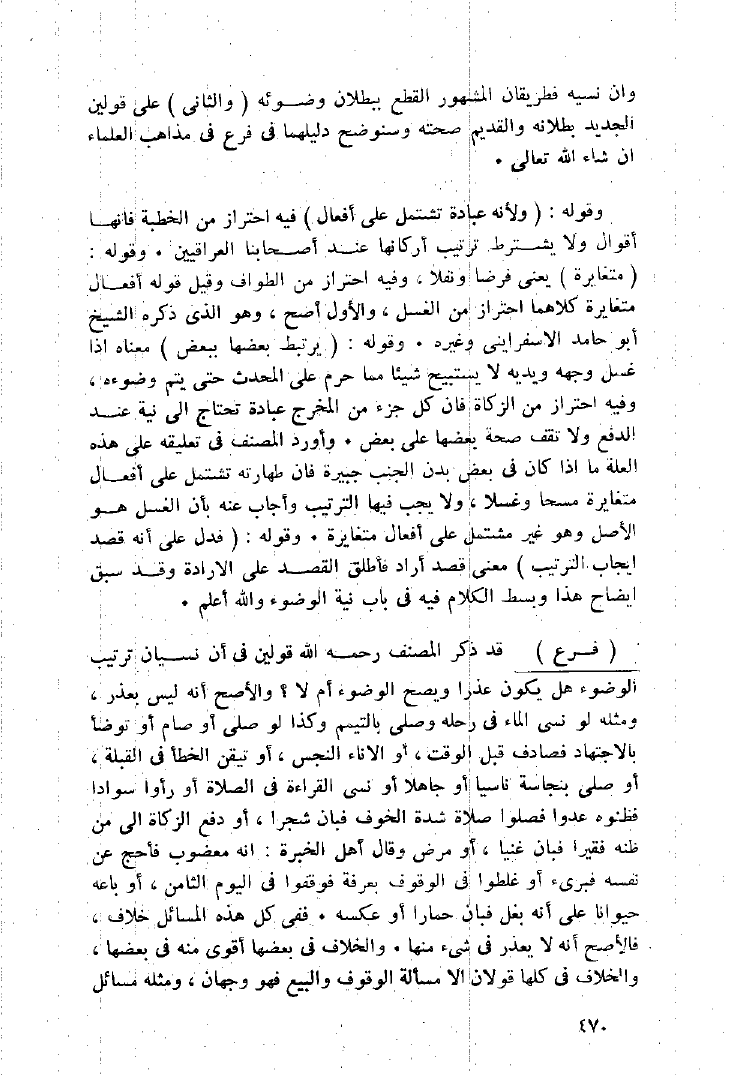 وان نسيه فطريقان المشهور القطع ببطلان وضوئه ( والثانى ) على قولين
الجديد بطلانه والقديم صحته وسنوضح دليلهما فى فرع فى مذاهب العلماء
ان شاء الله تعالى .
وقوله : ( ولأنه عبادة تشتمل على أفعال ) فيه احتراز من الخطبة فانها
أقوال ولا يشترط ترتيب أركانها عند أصحابنا العراقيين . وقوله :
( متغايرة ) يعنى فرضا ونفلا ، وفيه احتراز من الطواف وقيل قوله أفعال
متغايرة كلاهما احتراز من الغسل ، والأول أصح ، وهو الذى ذكره الشيخ
أبو حامد الاسفراينى وغيره . وقوله : ( يرتبط بعضها ببعض ) معناه اذا
غسل وجهه ويديه لا يستبيح شيئا مما حرم على المحدث حتى يتم وضوءه ،
وفيه احتراز من الزكاة فان كل جزء من المخرج عبادة تحتاج الى نية عند
الدفع ولا تقف صحة بعضها على بعض . وأورد المصنف فى تعليقه على هذه
العلة ما اذا كان فى بعض بدن الجنب جبيرة فان طهارته تشتمل على أفعال
متغايرة مسحا وغسلا ، ولا يجب فيها الترتيب وأجاب عنه بأن الغسل هو
الأصل وهو غير مشتمل على أفعال متغايرة . وقوله : ( فدل على أنه قصد
ايجاب الترتيب ) معنى قصد أراد فأطلق القصد على الارادة وقد سبق
ايضاح هذا وبسط الكلام فيه فى باب نية الوضوء والله أعلم .
( فرع ) قد ذكر المصنف رحمه الله قولين فى أن نسيان ترتيب
الوضوء هل يكون عذرا ويصح الوضوء أم لا ؟ والأصح أنه ليس بعذر ،
ومثله لو نسى الماء فى رحله وصلى بالتيمم وكذا لو صلى أو صام أو توضأ
بالاجتهاد فصادف قبل الوقت ، أو الاناء النجس ، أو تيقن الخطأ فى القبلة ،
أو صلى بنجاسة ناسيا أو جاهلا أو نسى القراءة فى الصلاة أو رأوا سوادا
فظنوه عدوا فصلوا صلاة شدة الخوف فبان شجرا ، أو دفع الزكاة الى من
ظنه فقيرا فبان غنيا ، أو مرض وقال أهل الخبرة : انه معضوب فأحج عن
نفسه فبرىء أو غلطوا فى الوقوف بعرفة فوقفوا فى اليوم الثامن ، أو باعه
حيوانا على أنه بغل فبان حمارا أو عكسه . ففى كل هذه المسائل خلاف ،
فالأصح أنه لا يعذر فى شىء منها . والخلاف فى بعضها أقوى منه فى بعضها ،
والخلاف فى كلها قولان الا مسألة الوقوف والبيع فهو وجهان ، ومثله مسائل
٤٧٠